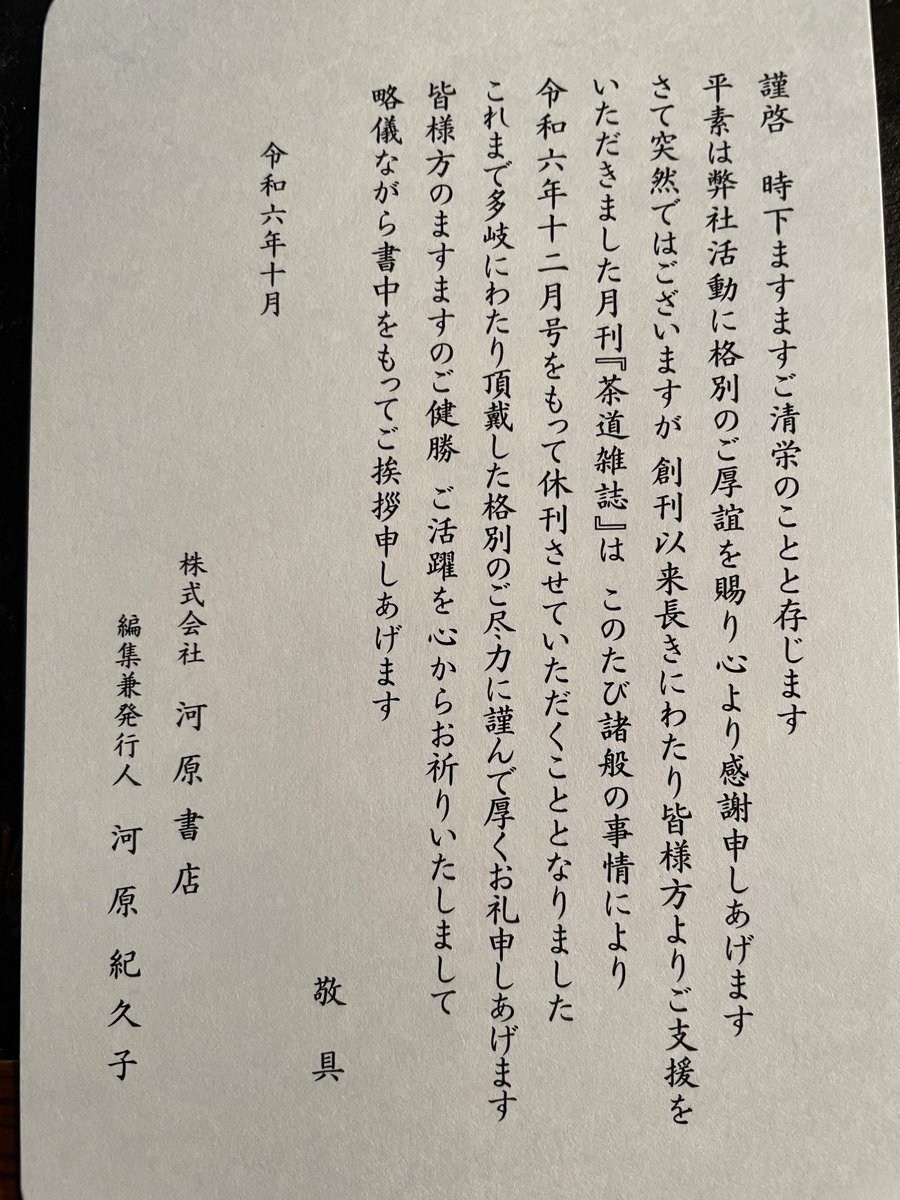 謹啓　時下ますますご清栄のことと存じます
平素は弊社活動に格別のご厚誼を賜り心より感謝申しあげます
さて突然ではございますが 創刊以来長きにわたり皆様方よりご支援を
いただきました月刊『茶道雑誌』は このたび諸般の事情により
令和六年十二月号をもって休刊させていただくこととなりました
これまで多岐にわたり頂戴した格別のご尽力に謹んで厚くお礼申しあげます
皆様方のますますのご健勝 ご活躍を心からお祈りいたしまして
略儀ながら書中をもってご挨拶申しあげます
敬具
令和六年十月
株式会社 河原書店
編集兼発行人 河原紀久子